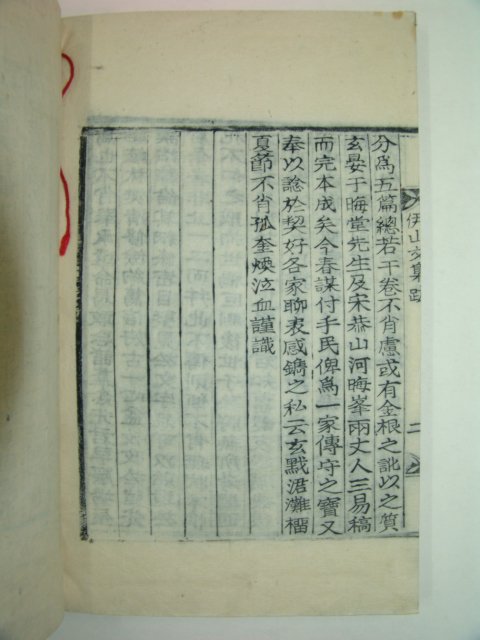 伊山文集跋
二
分爲五篇總若干卷不肖慮或有金根之訛以之質
玄晏于晦堂先生及宋恭山河晦峯兩丈人三易稿
而完本成矣今春謀付手民俾爲一家傳守之寶又
奉以諗於契好各家聊表感鐫之私云玄黓涒灘榴
夏節不肖孤奎煥泣血謹識